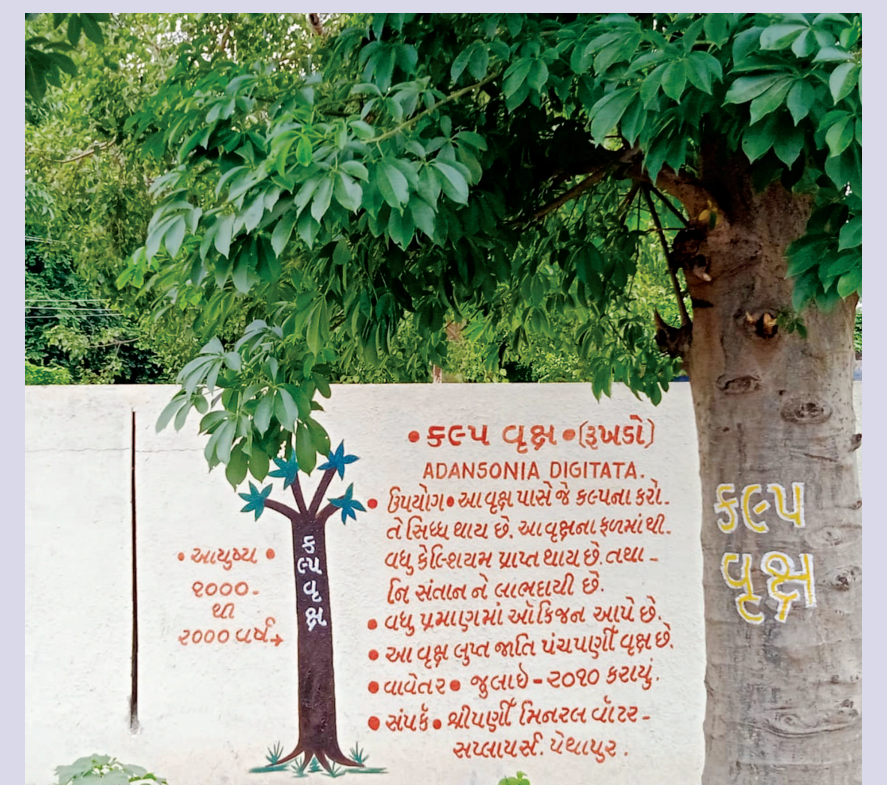 • કલ્પ વૃક્ષ • (રૂખડો)
ADANSONIA DIGITATA.
• ઉપયોગ • આ વૃક્ષ પાસે જે કલ્પના કરો.
તે સિધ્ધ થાય છે. આ વૃક્ષના ફળમાંથી.
વધુ કેલ્શિયમ પ્રાપ્ત થાય છે. તથા -
નિ સંતાન ને લાભદાયી છે.
• વધુ પ્રમાણમાં ઑકિજન આપે છે.
• આ વૃક્ષ લુપ્ત જાતિ પંચપર્ણી વૃક્ષ છે.
• વાવેતર • જુલાઇ - ૨૦૧૦ કરાયું.
• સંપર્ક • શ્રીપર્ણી મિનરલ વૉટર -
સપ્લાયર્સ. પેથાપુર .
• આયુષ્ય •
૧૦૦૦ -
થી
૨૦૦૦ વર્ષ →
ક
લ્પ
વૃ
ક્ષ
કલ્પ
વૃક્ષ